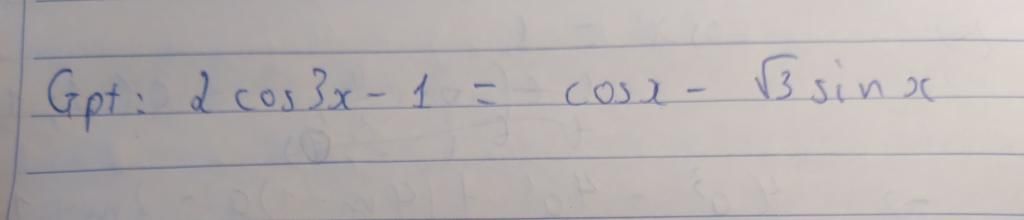 Gpt: 2 cos3x - 1 = cosx - √3 sin x